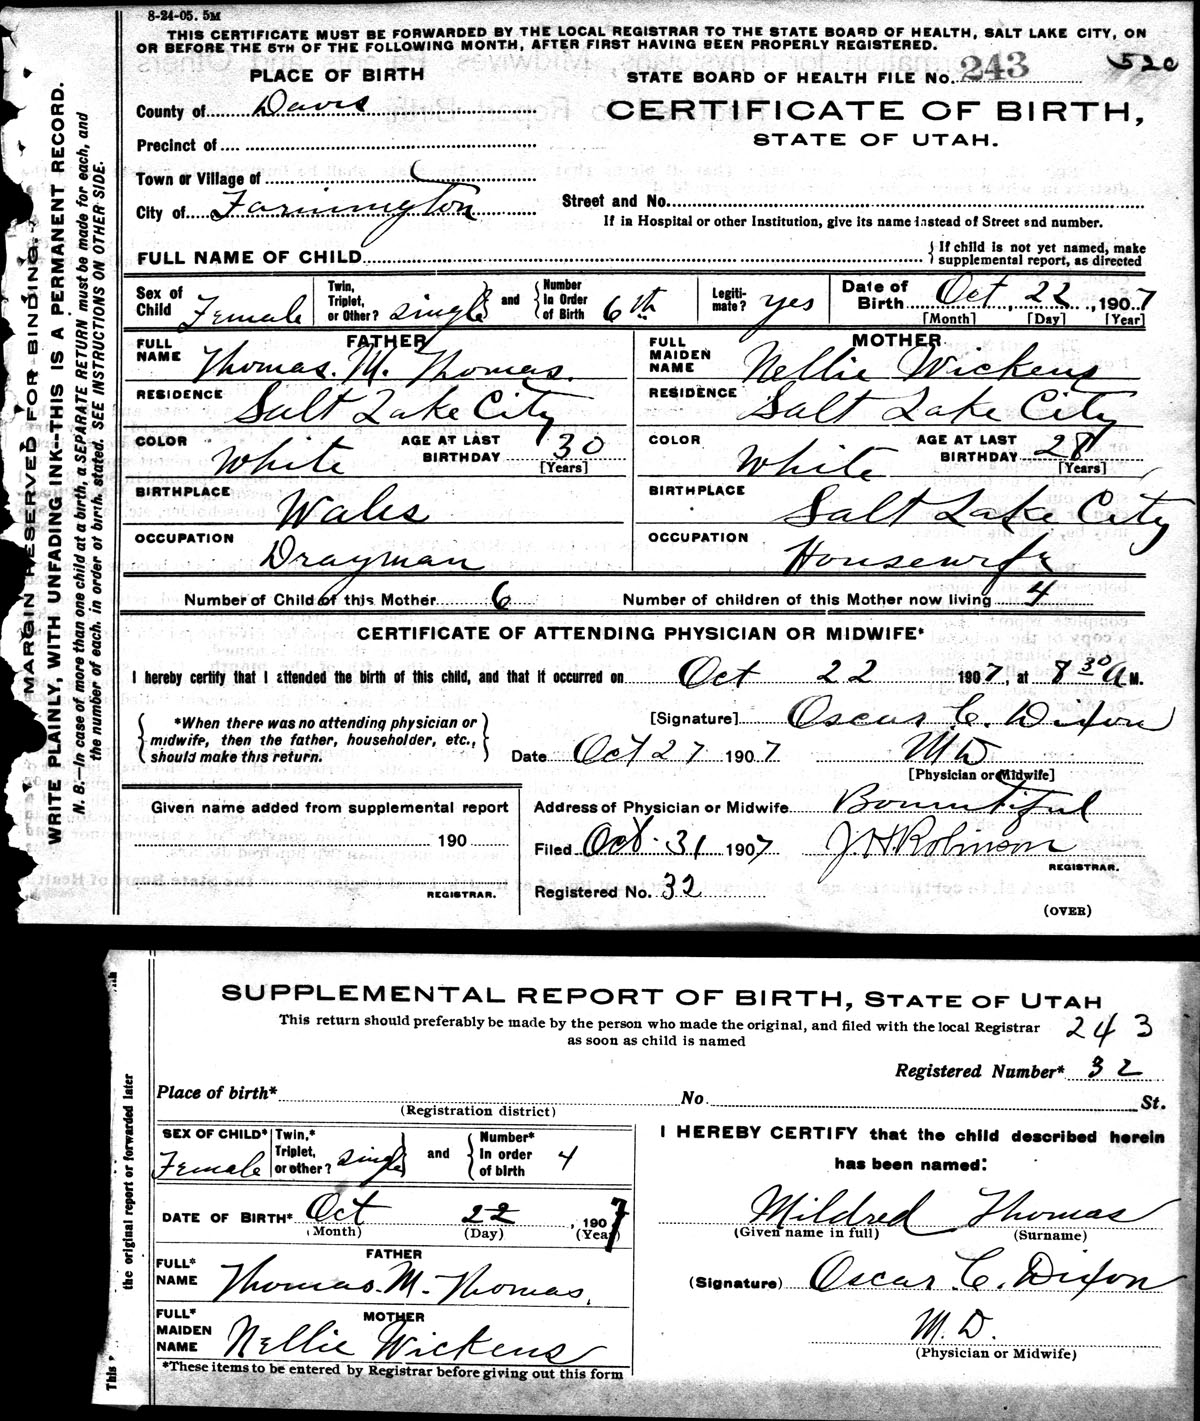 8-24-05. 5M
THIS CERTIFICATE MUST BE FORWARDED BY THE LOCAL REGISTRAR TO THE STATE BOARD OF HEALTH, SALT LAKE CITY, ON
OR BEFORE THE 5TH OF THE FOLLOWING MONTH, AFTER FIRST HAVING BEEN PROPERLY REGISTERED.
PLACE OF BIRTH
STATE BOARD OF HEALTH FILE NO. 243 520
County of Davis
CERTIFICATE OF BIRTH,
STATE OF UTAH.
Precinct of
Town or Village of
City of Farmington
Street and No.
If in Hospital or other Institution, give its name instead of Street and number.
FULL NAME OF CHILD
If child is not yet named, make
supplemental report, as directed
Sex of Child Female
Twin, Triplet, or Other? single and Number In Order of Birth 6th
Legitimate? yes
Date of Birth Oct 22, 1907
[Month] [Day] [Year]
FATHER
FULL NAME Thomas. M. Thomas.
RESIDENCE Salt Lake City
COLOR White AGE AT LAST BIRTHDAY 30
[Years]
BIRTHPLACE Wales
OCCUPATION Drayman
MOTHER
FULL MAIDEN NAME Nellie Wickens
RESIDENCE Salt Lake City
COLOR White AGE AT LAST BIRTHDAY 28
[Years]
BIRTHPLACE Salt Lake City
OCCUPATION Housewife
Number of Child of this Mother 6 Number of children of this Mother now living 4
CERTIFICATE OF ATTENDING PHYSICIAN OR MIDWIFE*
I hereby certify that I attended the birth of this child, and that it occurred on Oct 22 1907, at 8 30 A M.
*When there was no attending physician or
midwife, then the father, householder, etc.,
should make this return.
[Signature] Oscar C. Dixon
Date Oct 27 1907 M D
[Physician or Midwife]
Given name added from supplemental report
190
REGISTRAR.
Address of Physician or Midwife Bountiful
Filed Oct. 31 1907 J. H. Robinson
REGISTRAR.
Registered No. 32
(OVER)
MARGIN RESERVED FOR BINDING.
WRITE PLAINLY, WITH UNFADING INK--THIS IS A PERMANENT RECORD.
N. B.—In case of more than one child at a birth, a SEPARATE RETURN must be made for each, and
the number of each. in order of birth. stated. SEE INSTRUCTIONS ON OTHER SIDE.
SUPPLEMENTAL REPORT OF BIRTH, STATE OF UTAH
This return should preferably be made by the person who made the original, and filed with the local Registrar
as soon as child is named
243
Registered Number* 32
Place of birth* No. St.
(Registration district)
SEX OF CHILD* Female
Twin,* Triplet, or other? single and Number* In order of birth 4
DATE OF BIRTH* Oct 22, 1907
(Month) (Day) (Year)
FATHER
FULL* NAME Thomas. M. Thomas.
MOTHER
FULL* MAIDEN NAME Nellie Wickens
*These items to be entered by Registrar before giving out this form
I HEREBY CERTIFY that the child described herein
has been named:
Mildred Thomas
(Given name in full) (Surname)
(Signature) Oscar C. Dixon
M. D.
(Physician or Midwife)
the original report or forwarded later
This